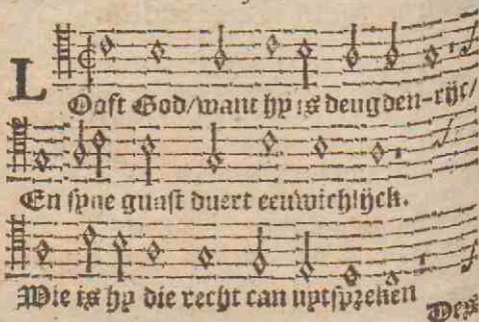 LOoft God/want hy is deugden-rijc/
En syne gunst duert eeuwichlijck.
Wie is hy die recht can uytspreken
Des